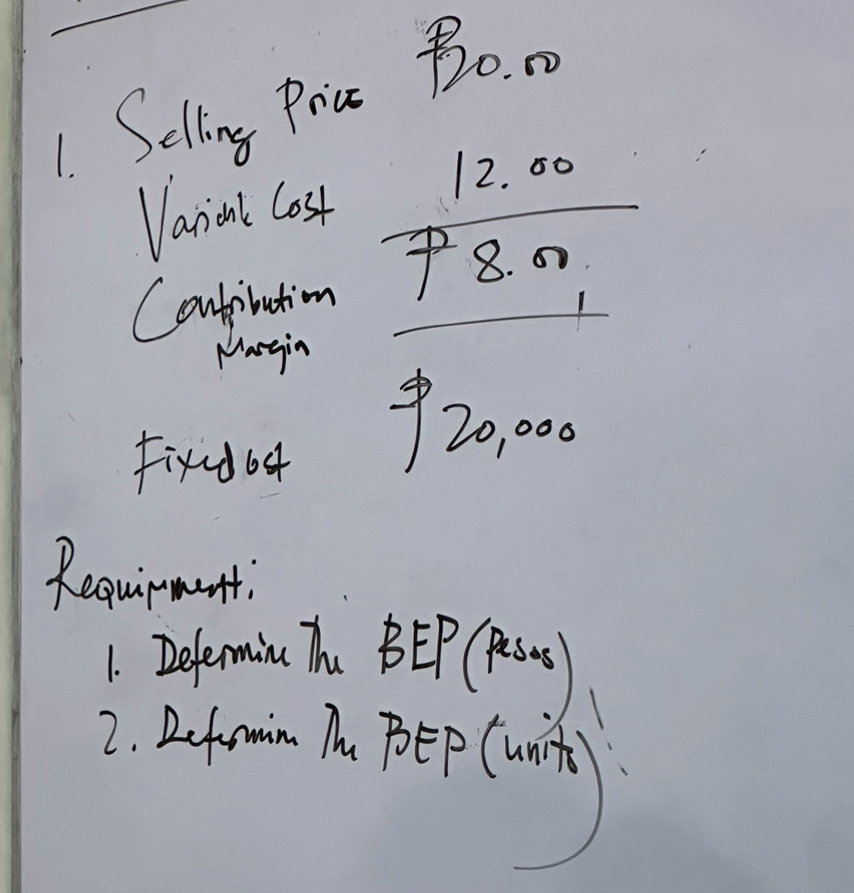 1. Selling Price ₱20.00
Variable Cost 12.00
Contribution ₱ 8.00
Margin
Fixed Cost ₱20,000
Requirement:
1. Determine The BEP (Pesos)
2. Determine The BEP (units)